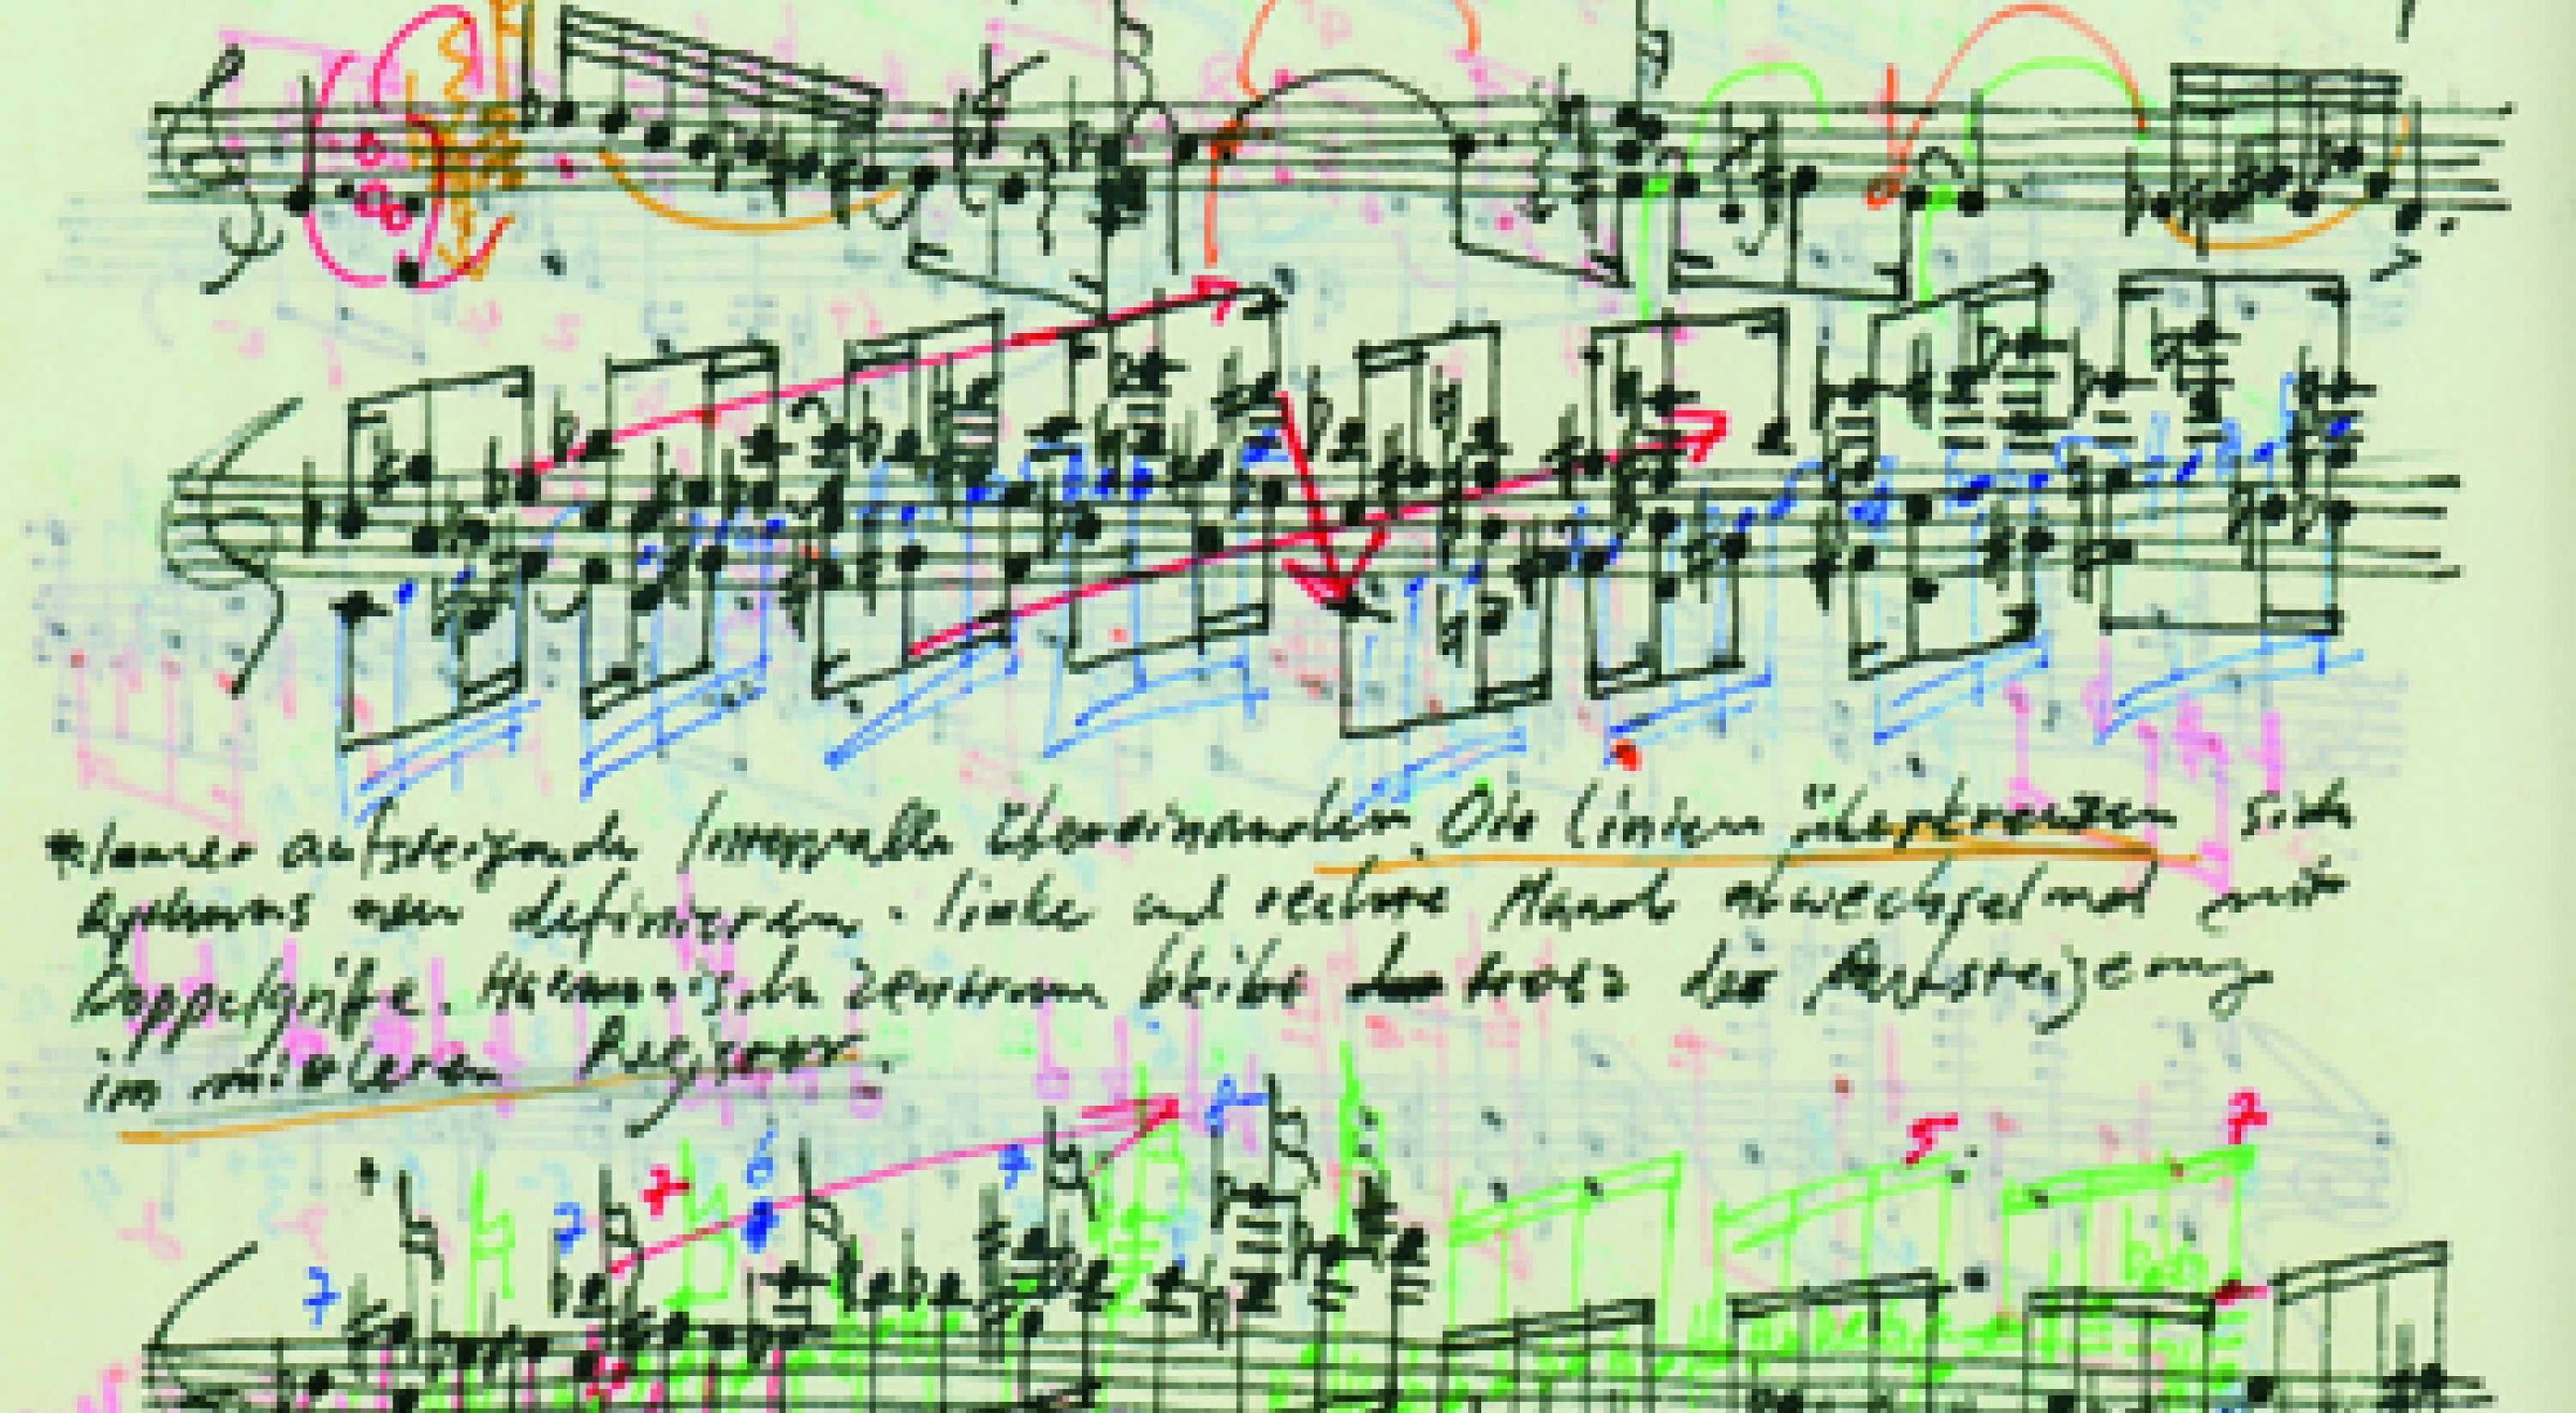 7 5 7
7 7 6 7 8
*Immer aufsteigende Intervalle übereinander. Die Linien überkreuzen sich
neu definieren. Linke und rechte Hand abwechselnd mit
Doppelgriffe. Harmonische Zentrum bleibt trotz der Aufsteigerung
im mittleren Register.